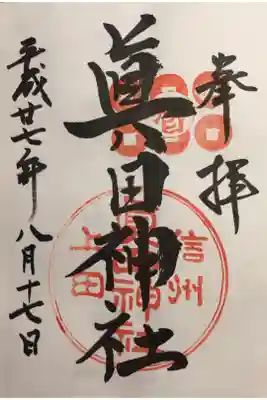 奉拝
眞田神社
平成廿七年八月十七日
信州
上田
眞田神社